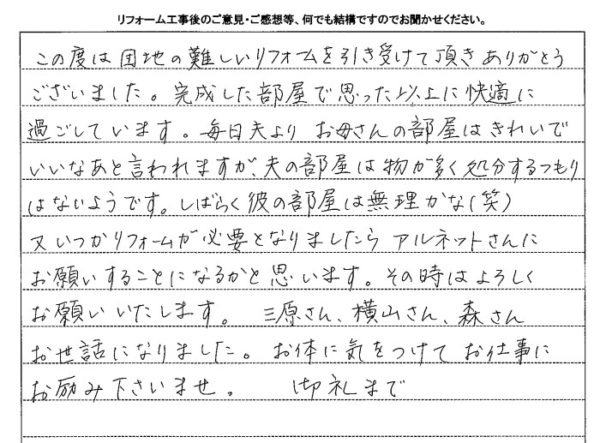 リフォーム工事後のご意見・ご感想等、何でも結構ですのでお聞かせください。
この度は団地の難しいリフォームを引き受けて頂きありがとう
ございました。完成した部屋で思った以上に快適に
過ごしています。毎日夫より お母さんの部屋はきれいで
いいなあと言われますが、夫の部屋は物が多く処分するつもり
はないようです。しばらく彼の部屋は無理かな(笑)
又いつかリフォームが必要となりましたら アルネットさんに
お願いすることになるかと思います。その時はよろしく
お願いいたします。 三原さん、横山さん、森さん
お世話になりました。お体に気をつけて お仕事に
お励み下さいませ。 御礼まで